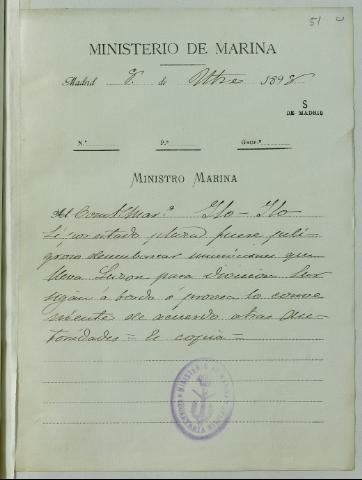 51
MINISTERIO DE MARINA
Madrid 8. de Otbre 1898
S
DE MADRID
N.º P.s Grup.s
MINISTRO MARINA
Al Comte Mar.ª Ilo-Ilo
Si por estado plaza fuese peli-
groso desembarcar municiones que
lleva Luzon para division Sur
sigan á bordo ó provea lo conve
niente de acuerdo otras Au-
toridades = Es copia =
MINISTERIO DE MARINA